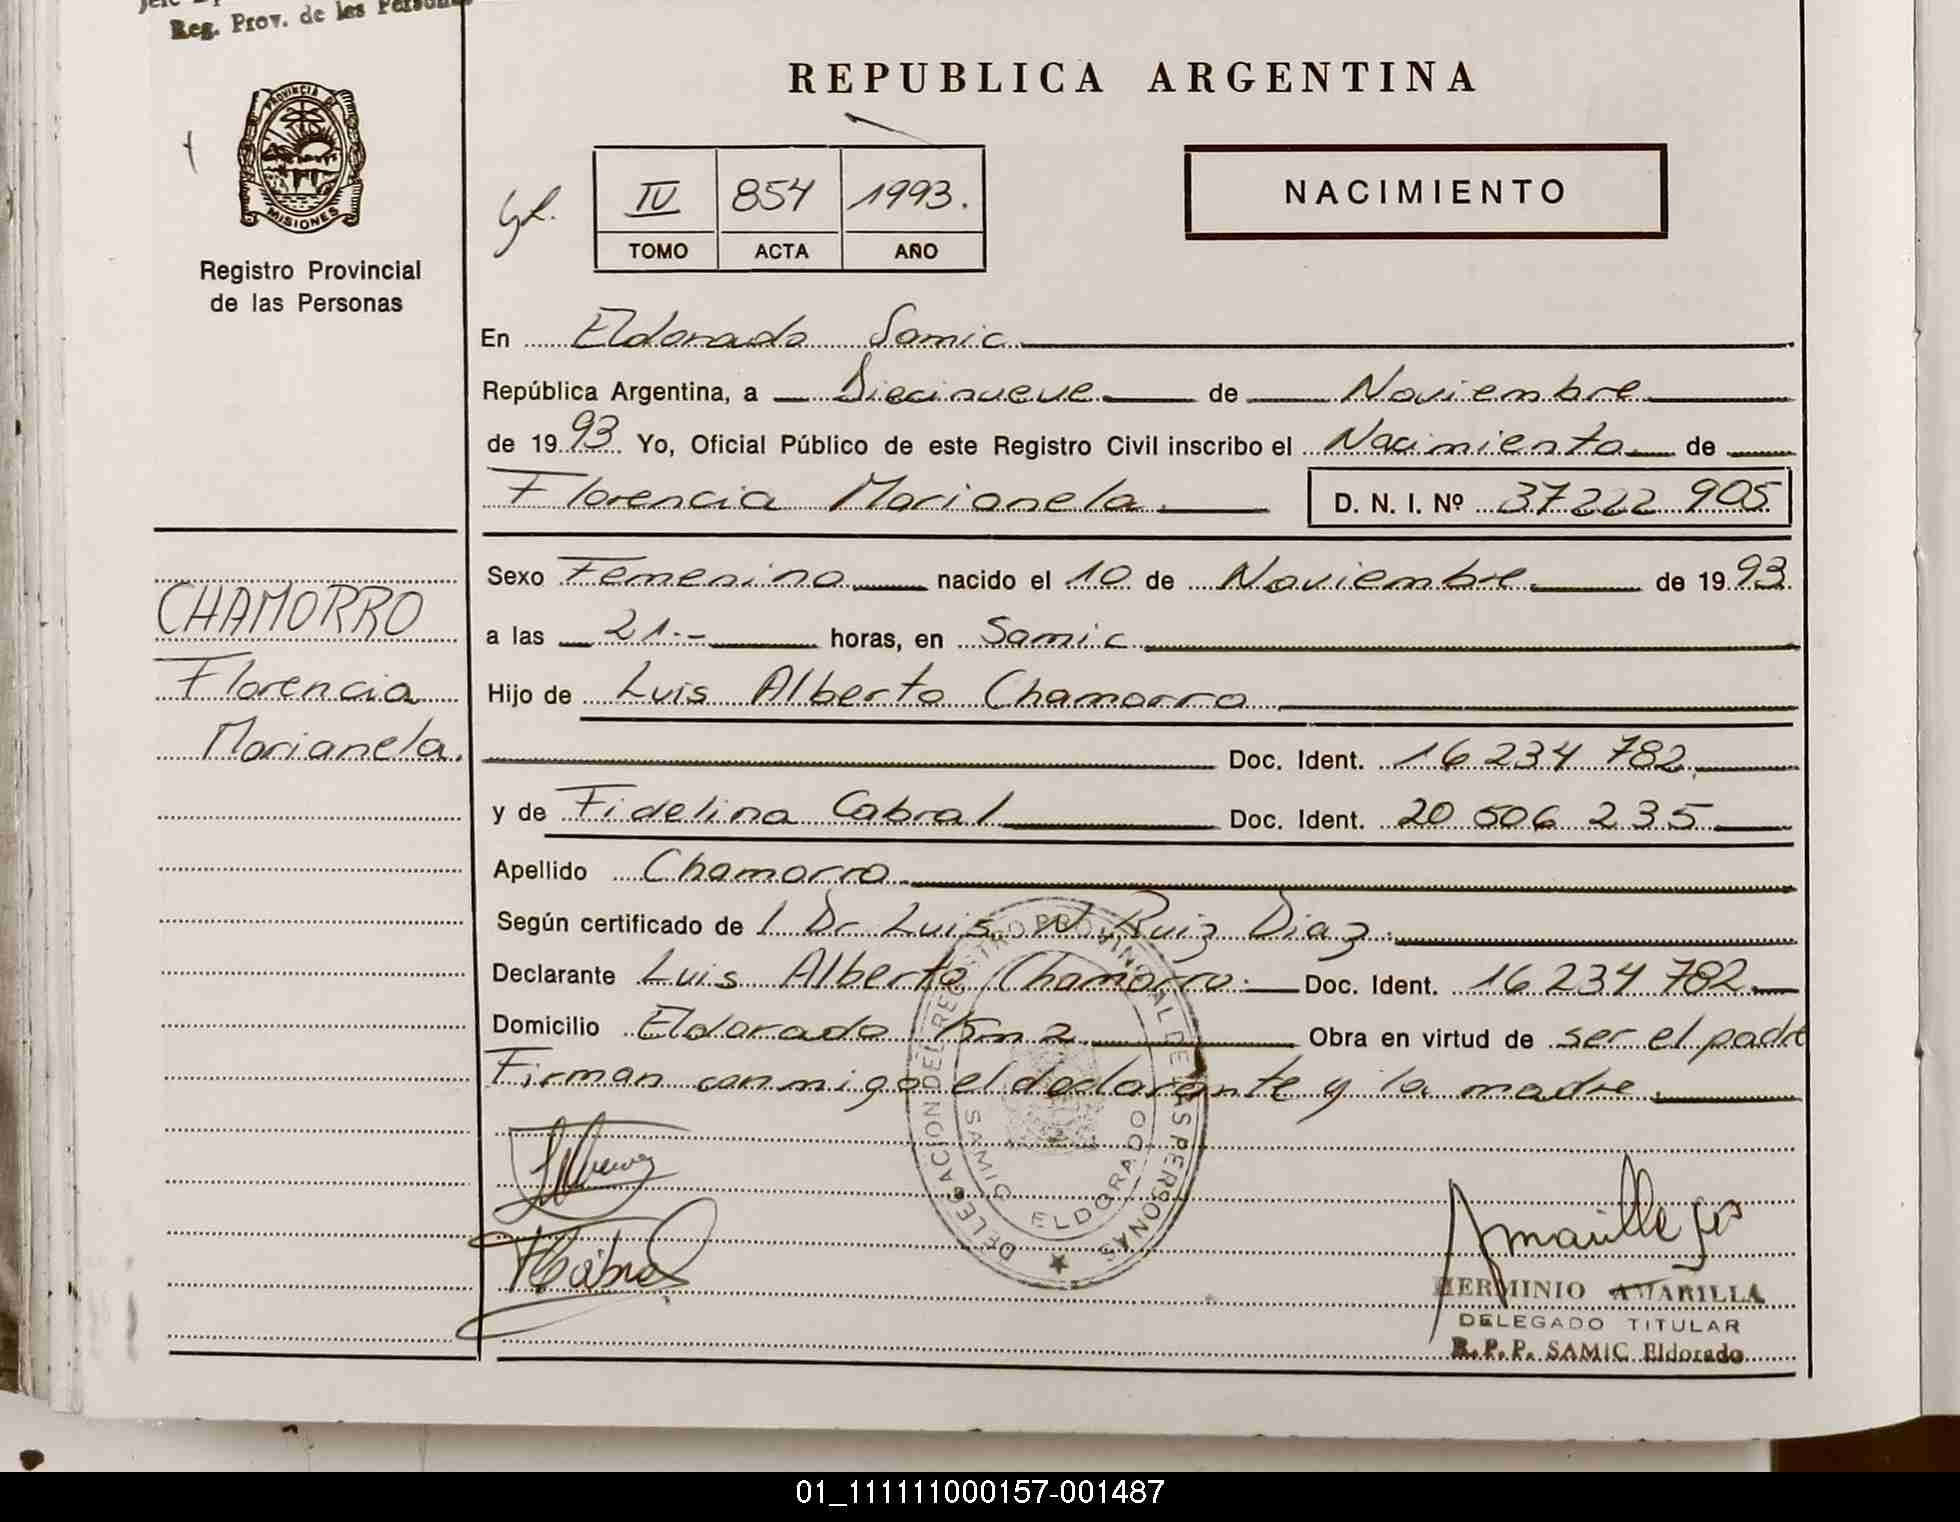 Reg. Prov. de las Personas
PROVINCIA DE
MISIONES
Registro Provincial
de las Personas
CHAMORRO
Florencia
Marianela.
REPUBLICA ARGENTINA
IV 854 1993.
TOMO ACTA AÑO
NACIMIENTO
En Eldorado Samic
República Argentina, a Diecinueve de Noviembre
de 1993. Yo, Oficial Público de este Registro Civil inscribo el Nacimiento de
Florencia Marianela. D. N. I. Nº 37222 905
Sexo Femenino nacido el 10 de Noviembre de 1993.
a las 21.- horas, en Samic
Hijo de Luis Alberto Chamorro
Doc. Ident. 16 234 782.
y de Fidelina Cabral Doc. Ident. 20 506 235
Apellido Chamorro
Según certificado de / Dr Luis N. Ruiz Diaz.
Declarante Luis Alberto Chamorro. Doc. Ident. 16 234 782.
Domicilio Eldorado Km 2. Obra en virtud de ser el padre
Firman conmigo el declarante y la madre
DELEGACION DEL REGISTRO PROVINCIAL DE LAS PERSONAS
SAMIC ELDORADO
HERMINIO AMARILLA
DELEGADO TITULAR
R. P. P. SAMIC Eldorado
01_111111000157-001487